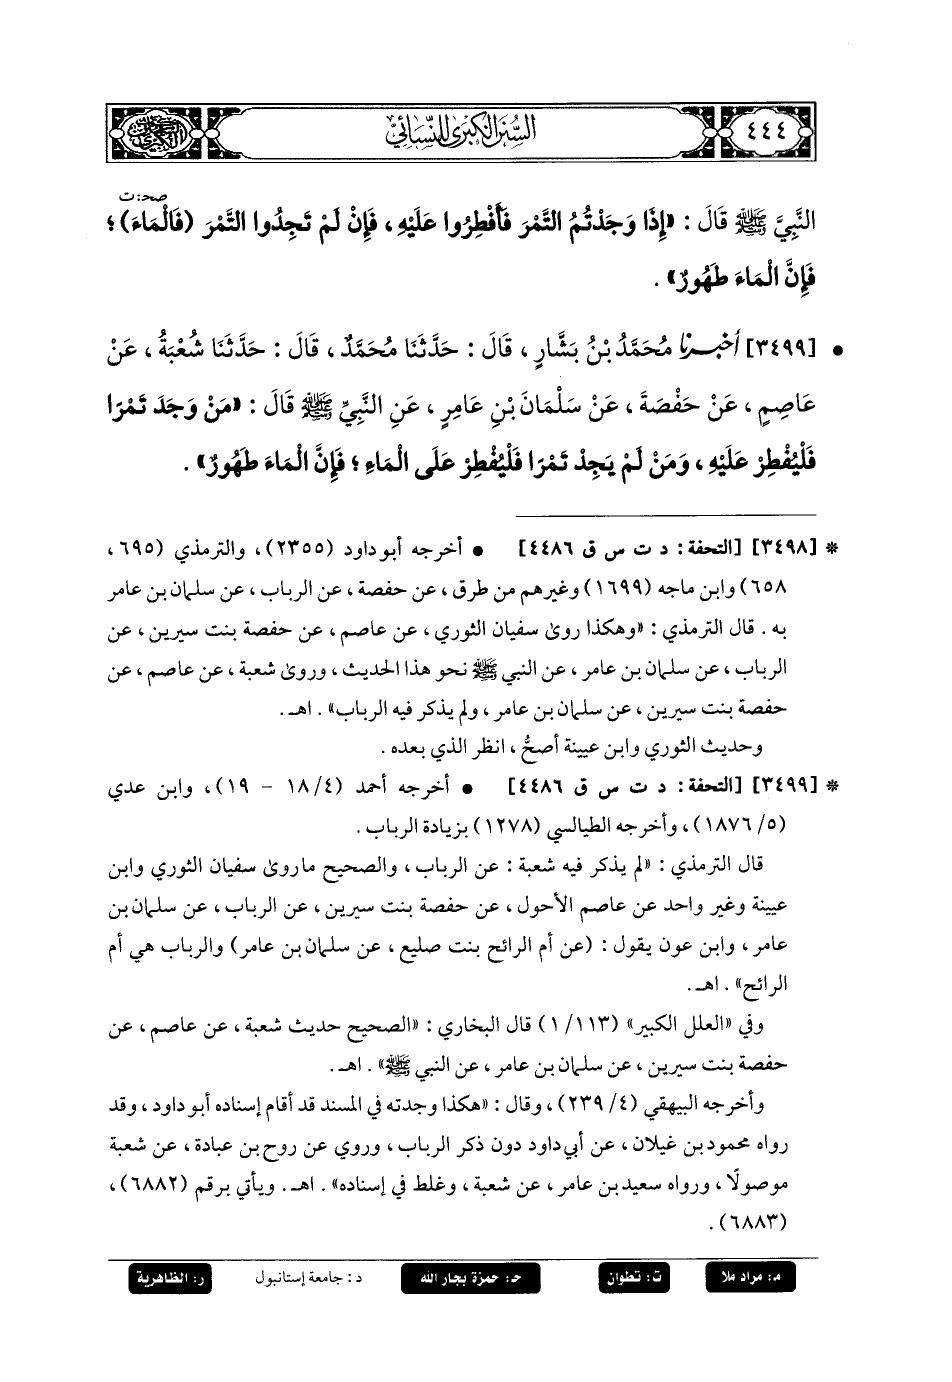 ٤٤٤
السنن الكبرى للنسائي
صحـ: ت
النَّبِيَّ ﷺ قَالَ : «إِذَا وَجَدْتُمُ التَّمْرَ فَأَفْطِرُوا عَلَيْهِ ، فَإِنْ لَمْ تَجِدُوا التَّمْرَ (فَالْمَاءَ) ؛
فَإِنَّ الْمَاءَ طَهُورٌ» .
• [٣٤٩٩] أَخْبَرَنَا مُحَمَّدُ بْنُ بَشَّارٍ ، قَالَ : حَدَّثَنَا مُحَمَّدٌ ، قَالَ : حَدَّثَنَا شُعْبَةُ ، عَنْ
عَاصِمٍ ، عَنْ حَفْصَةَ ، عَنْ سَلْمَانَ بْنِ عَامِرٍ ، عَنِ النَّبِيِّ ﷺ قَالَ : «مَنْ وَجَدَ تَمْرًا
فَلْيُفْطِرْ عَلَيْهِ ، وَمَنْ لَمْ يَجِدْ تَمْرًا فَلْيُفْطِرْ عَلَى الْمَاءِ ؛ فَإِنَّ الْمَاءَ طَهُورٌ» .
* [٣٤٩٨] [التحفة : د ت س ق ٤٤٨٦] • أخرجه أبو داود (٢٣٥٥) ، والترمذي (٦٩٥ ،
٦٥٨) وابن ماجه (١٦٩٩) وغيرهم من طرق ، عن حفصة ، عن الرباب ، عن سلمان بن عامر
به . قال الترمذي : «وهكذا روى سفيان الثوري ، عن عاصم ، عن حفصة بنت سيرين ، عن
الرباب ، عن سلمان بن عامر ، عن النبي ﷺ نحو هذا الحديث ، وروى شعبة ، عن عاصم ، عن
حفصة بنت سيرين ، عن سلمان بن عامر ، ولم يذكر فيه الرباب» . اهـ .
وحديث الثوري وابن عيينة أصحُّ ، انظر الذي بعده .
* [٣٤٩٩] [التحفة : د ت س ق ٤٤٨٦] • أخرجه أحمد (٤/ ١٨ - ١٩) ، وابن عدي
(٥/ ١٨٧٦) ، وأخرجه الطيالسي (١٢٧٨) بزيادة الرباب .
قال الترمذي : «لم يذكر فيه شعبة : عن الرباب ، والصحيح ما روى سفيان الثوري وابن
عيينة وغير واحد عن عاصم الأحول ، عن حفصة بنت سيرين ، عن الرباب ، عن سلمان بن
عامر ، وابن عون يقول : (عن أم الرائح بنت صليع ، عن سلمان بن عامر) والرباب هي أم
الرائح» . اهـ .
وفي «العلل الكبير» (١١٣/ ١) قال البخاري : «الصحيح حديث شعبة ، عن عاصم ، عن
حفصة بنت سيرين ، عن سلمان بن عامر ، عن النبي ﷺ» . اهـ .
وأخرجه البيهقي (٤/ ٢٣٩) ، وقال : «هكذا وجدته في المسند قد أقام إسناده أبو داود ، وقد
رواه محمود بن غيلان ، عن أبي داود دون ذكر الرباب ، وروي عن روح بن عبادة ، عن شعبة
موصولًا ، ورواه سعيد بن عامر ، عن شعبة ، وغلط في إسناده» . اهـ . ويأتي برقم (٦٨٨٢) ،
(٦٨٨٣) .
م : مراد ملا ت : تطوان حـ : حمزة بجار الله د : جامعة إستانبول ر : الظاهرية